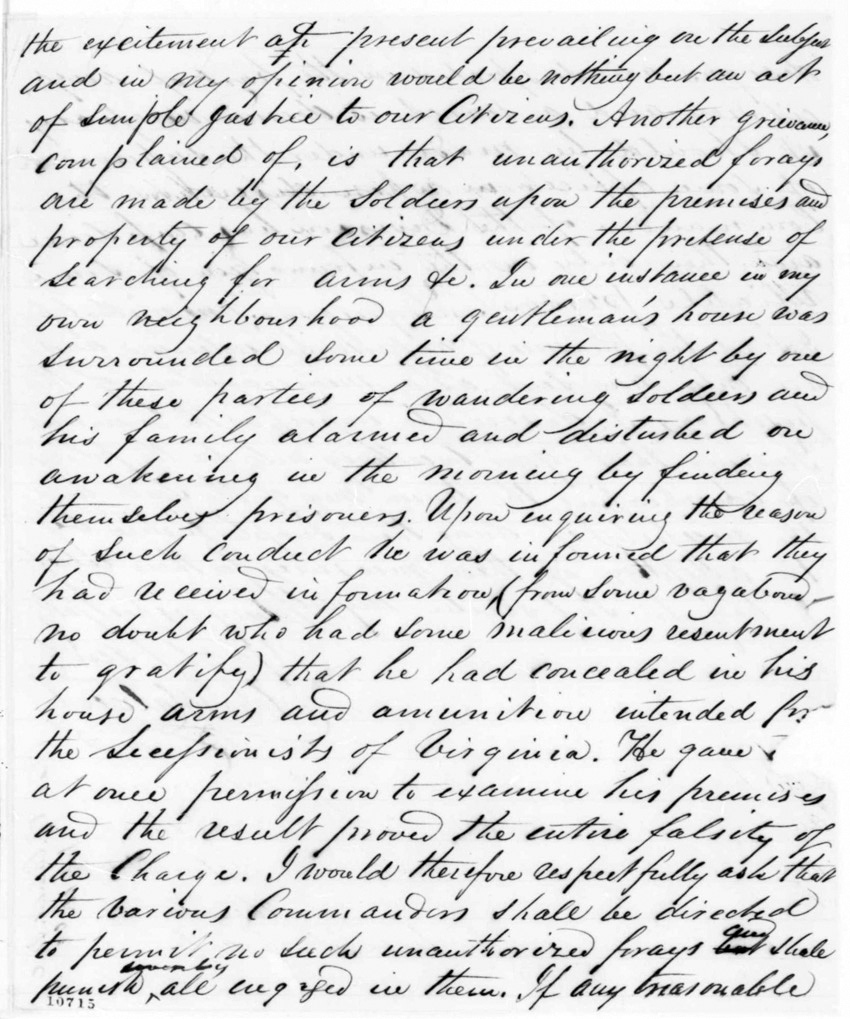 the excitement at present prevailing on the subject
and in my opinion would be nothing but an act
of simple justice to our Citizens. Another grievance,
complained of, is that unauthorized forays
are made by the Soldiers upon the premises and
property of our citizens under the pretense of
searching for arms &c. In one instance in my
own neighbourhood a gentleman's house was
surrounded some time in the night by one
of these parties of wandering soldiers and
his family alarmed and disturbed on
awakening in the morning by finding
themselves prisoners. Upon enquiring the reason
of such conduct he was informed that they
had received information, (from some vagabond
no doubt who had some malicious resentment
to gratify) that he had concealed in his
house arms and amunition intended for
the Secessionists of Virginia. He gave
at once permission to examine his premises
and the result proved the entire falsity of
the Charge. I would therefore respectfully ask that
the various Commanders shall be directed
to permit no such unauthorized forays and shall
punish severely all engaged in them. If any treasonable
10715